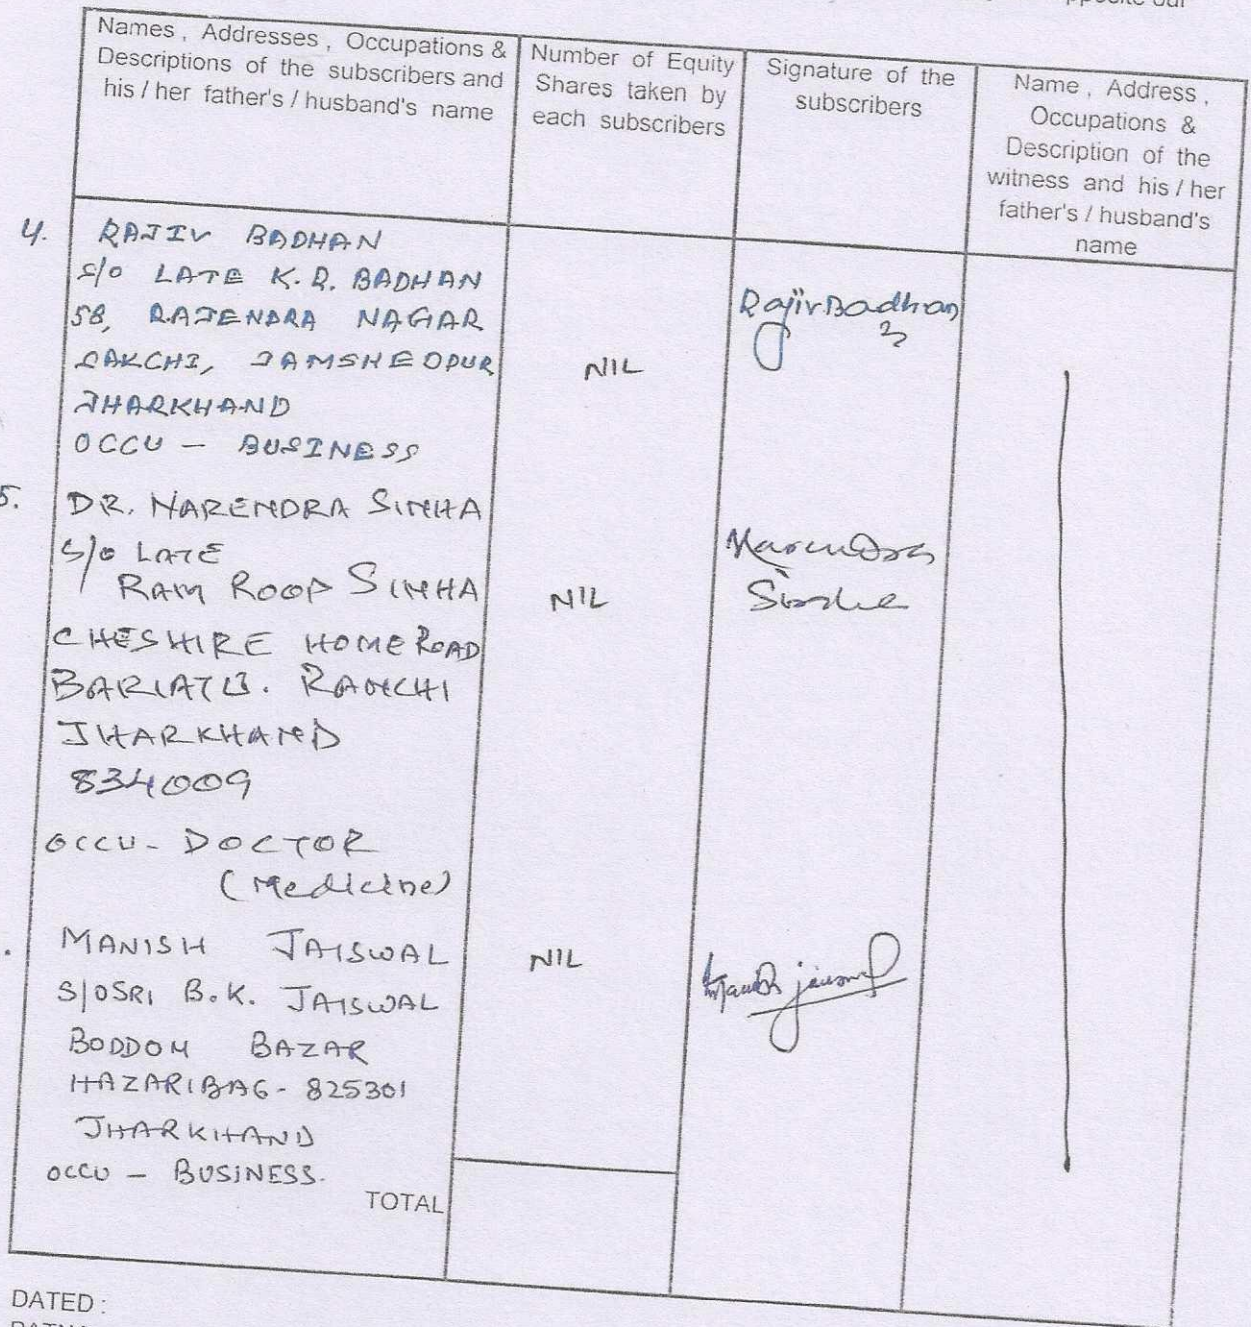 pposite our
Names , Addresses , Occupations &
Descriptions of the subscribers and
his / her father's / husband's name
Number of Equity
Shares taken by
each subscribers
Signature of the
subscribers
Name , Address ,
Occupations &
Description of the
witness and his / her
father's / husband's
name
4. RAJIV BADHAN
S/O LATE K.R. BADHAN
58, RAJENDRA NAGAR
SAKCHI, JAMSHEDPUR
JHARKHAND
OCCU - BUSINESS
NIL
Rajiv Badhan
5. DR. NARENDRA SINHA
S/O LATE
RAM ROOP SINHA
CHESHIRE HOME ROAD
BARIATU. RANCHI
JHARKHAND
834009
OCCU - DOCTOR
(Medicine)
NIL
Narendra
Sinha
. MANISH JAISWAL
S/O SRI B.K. JAISWAL
BODDOM BAZAR
HAZARIBAG - 825301
JHARKHAND
OCCU - BUSINESS.
NIL
Manish jaiswal
TOTAL
DATED :